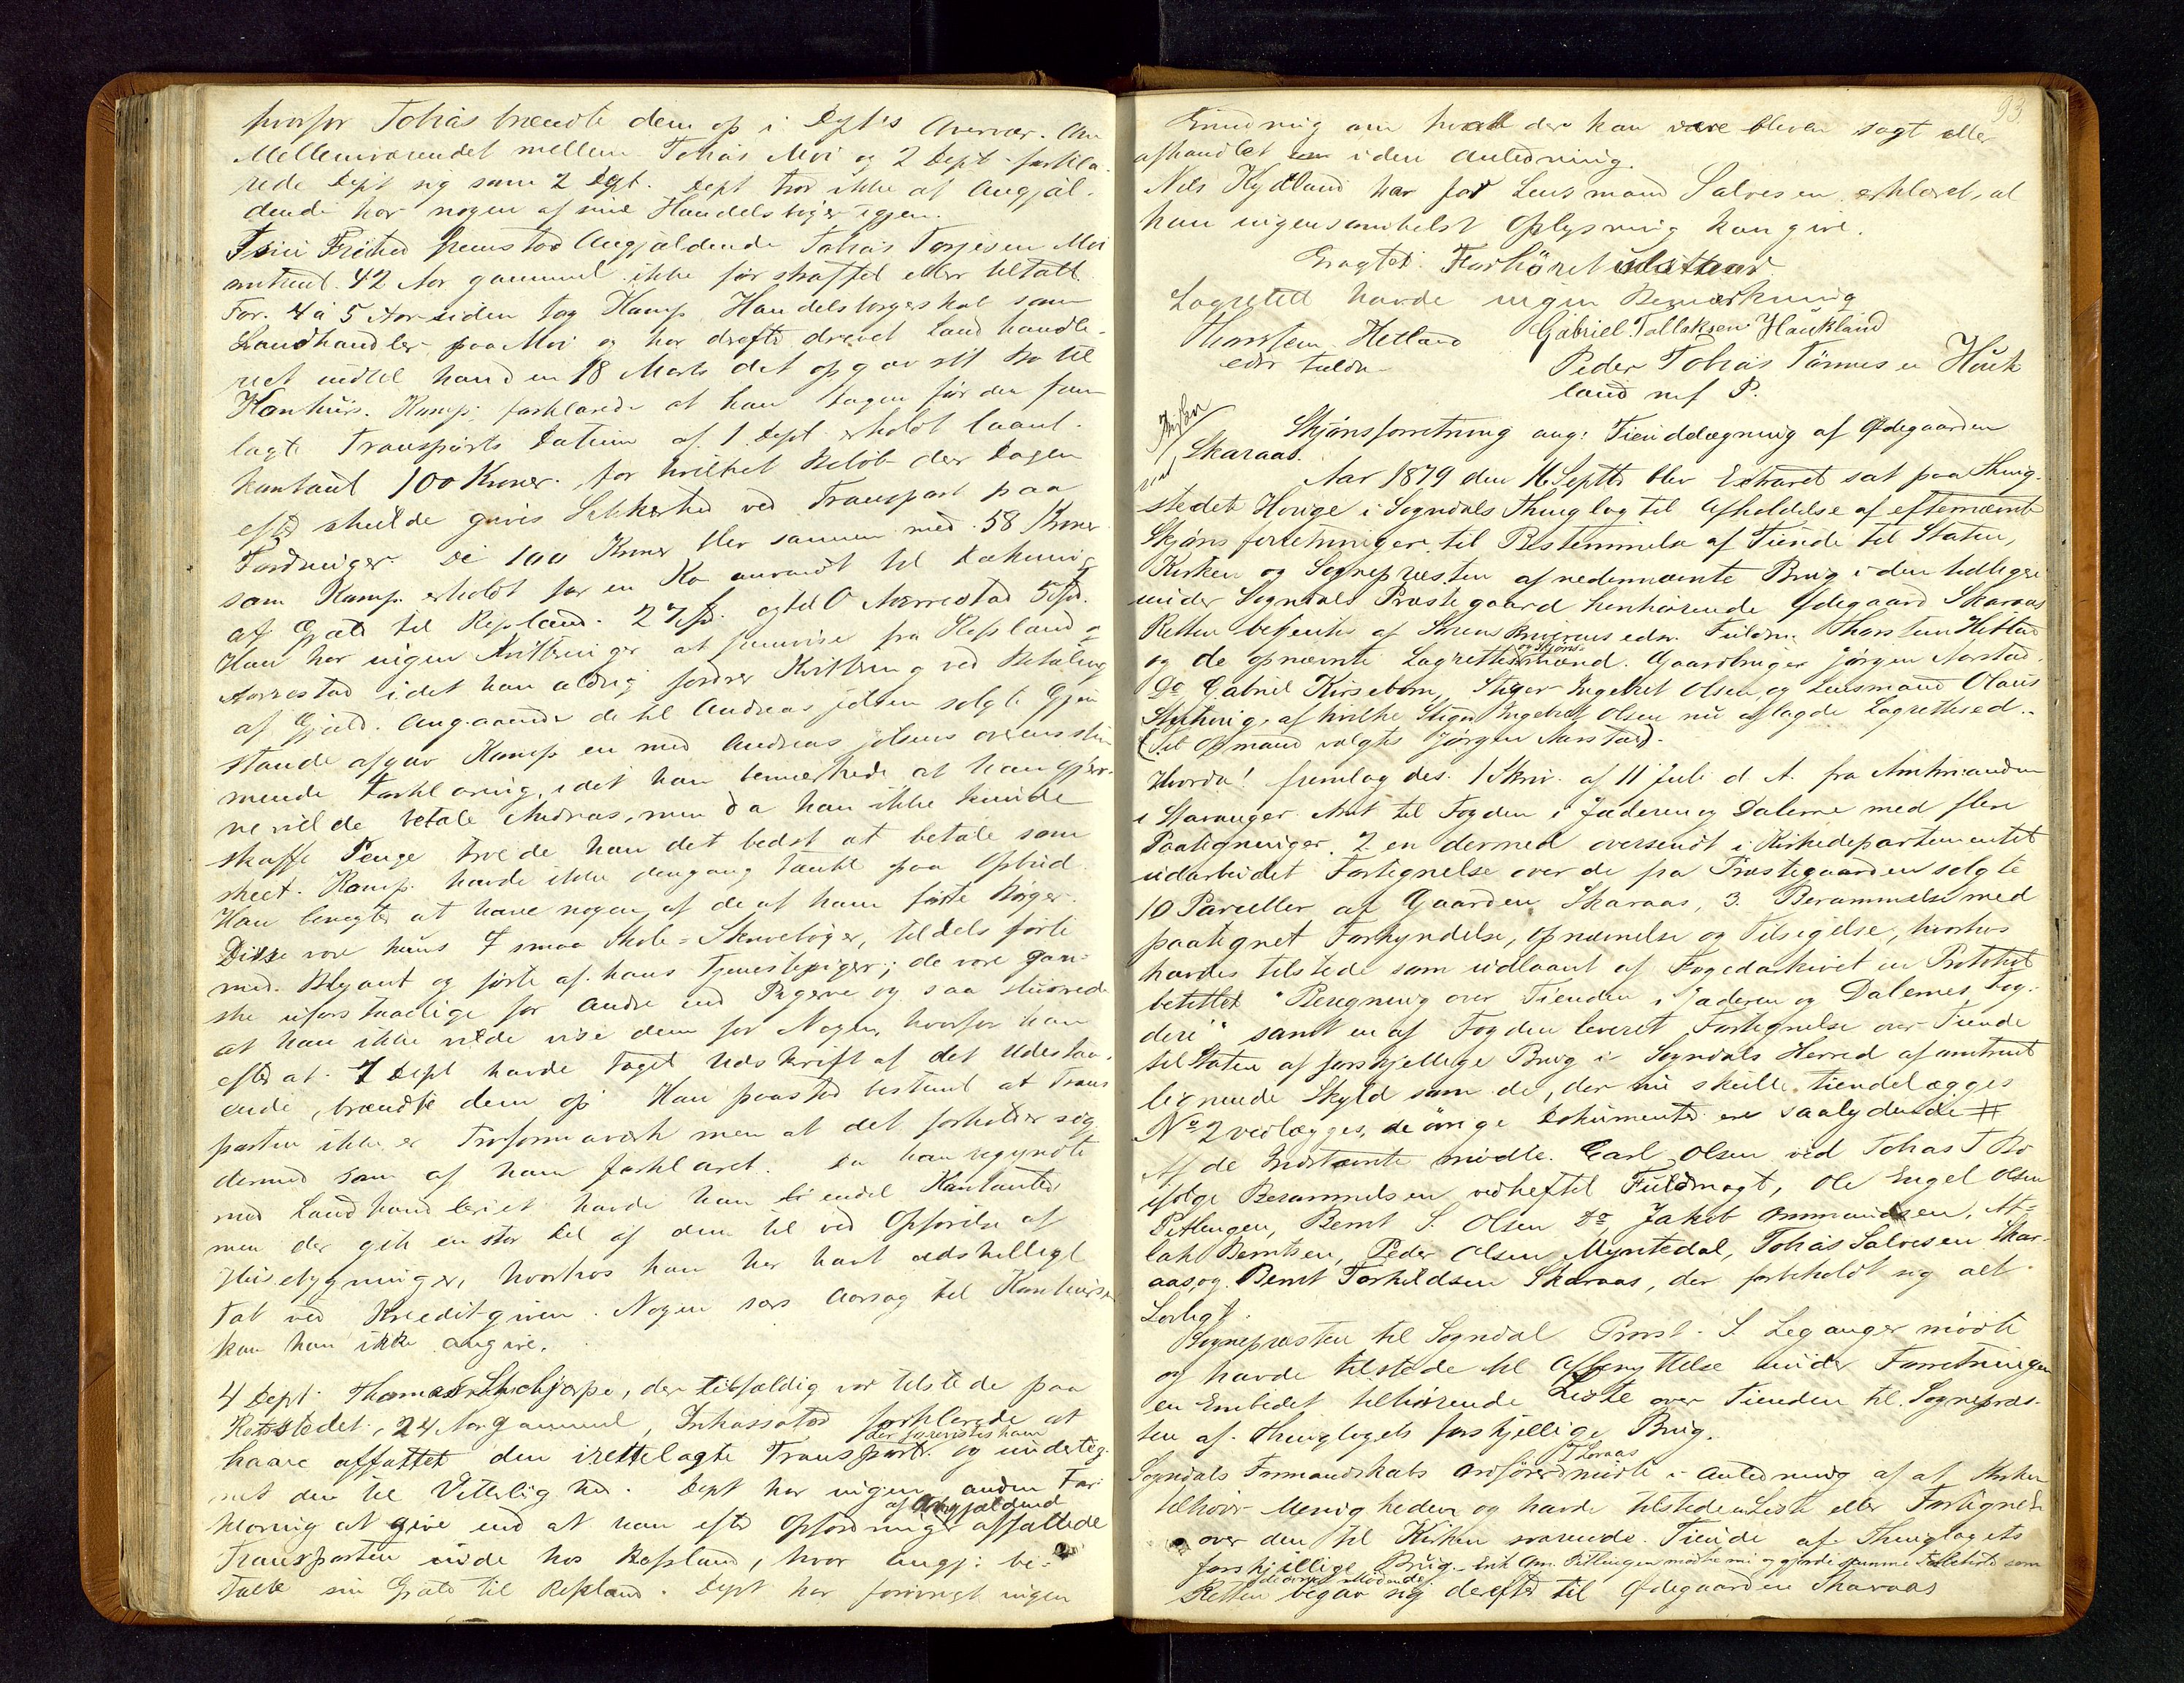 hvorfor Tobias brændte dem op i Dept's Overvær. Om
Mellemværendet mellem Tobias Moi og 2 Dept forkla-
rede Dept sig som 2 Dept. Dept tror ikke at Angjæl-
dende har nogen af sine Handelsbøger igjen.
I sin Frihed fremstod Angjældende Tobias Torjesen Moi
omtrent 42 Aar gammel ikke før straffet eller tiltalt.
For 4 à 5 Aar siden tog Komp. Handelsborgerskab som
Landhandler paa Moi og har drevet Landhandle-
riet indtil han den 18 Marts det opgav sit Bo til
Konkurs. Komp. forklarede at han Dagen før den frem-
lagte Transports Datum af 1 Dept erholdt laant
kontant 100 Kroner for hvilket Beløb der Dagen
efter skulde gives Sikkerhed ved Transport paa
Fordringer. De 100 Kroner blev sammen med 58 Kroner
som Komp. erholdt for en Ko anvendt til Dækning
af Gjæld til Repland 27 Spd. og til O Aarrestad 5 Spd.
Han har ingen Kvitteringer at fremvise fra Repland og
Aarrestad idet han aldrig fordrer Kvittering ved Betaling
af Gjæld. Angaaende de til Andreas Jølsen solgte Gjen-
stande afgav Komp. en med Andreas Jølsens overensstem-
mende Forklaring, idet han bemærkede at han gjer-
ne vilde betale Andreas, men da han ikke kunde
skaffe Penge troede han det bedst at betale som
skeet. Komp. havde ikke dengang tænkt paa Opbud.
Han benegter at have nogen af de af ham førte Bøger.
Disse vare kuns 7 smaa Skole-Skrivebøger, tildels førte
med Blyant og førte af hans Tjenestepiger; de vare gan-
ske uforstaaelige for Andre end Pigerne og saa
at han ikke vilde vise dem for Nogen, hvorfor han
efter at 1 Dept havde taget Udskrift af det Udestaa-
ende, brændte dem op. Han paastod bestemt at Trans-
porten ikke er Proformaværk men at det forholder sig
dermed som af ham forklaret. Da han begyndte
med Landhandleriet havde han en endel Kontanter
men der gik en stor Del af dem til ved Opførelse af
Husebygninger, hvorhos han har havt adskilligt
Tab ved Kreditgiven. Nogen sær Aarsag til Konkursen
kan han ikke angive.
4 Dept Thomas Skjerpe, der tilfældig var tilstede paa
Retsstedet, 24 Aar gammel, Inkassator forklarede at
have affattet den irettelagte Transport der forevistes ham og underteg-
net den til Vitterlighed. Dept har ingen anden For-
klaring at give end at han efter Opfordring af Angjældende affattede
Transporten inde hos Repland, hvor Angj: be-
talte sin Gjæld til Repland. Dept har forøvrigt ingen
93
Erindring om hvad der kan være bleven sagt eller
afhandlet i den Anledning.
Nils Kydland har for Lensmand Salvesen erklæret, at
han ingensomhelst Oplysning kan give.
Eragtet: Forhøret sluttes
Lagrettet havde ingen Bemærkning
Thorstein Hetland Gabriel Tollaksen Haukland
edsv Fuldm. Peder Tobias Tønnesen Hauk
land m f P.
Skjønsforretning ang: Tiendelægning af Ødegaarden
Skaraas.
Aar 1879 den 16 Septbr blev Extraret sat paa Thing-
stedet Hovige i Sogndals Thinglag til Afholdelse af efternævnte
Skjønsforretninger til Bestemmelse af Tiende til Staten,
Kirken og Sognepræsten af nedennævnte Brug i den tidligere
under Sogndals Præstegaard henhørende Ødegaard Skaraas
Retten betjentes af Sorenskriverens edsv. Fuldm. Thorstein Hetland
og de opnævnte Lagrettes og Skjøns-mænd Gaardbruger Jørgen Aarstad.
Do Gabriel Kirsebom, Stiger Ingebret Olsen og Lensmand Olaus
Stuhaug, af hvilke Stiger Ingebret Olsen nu aflagde Lagretteseed.
(Til Opmand valgtes Jørgen Aarstad.
Hvorda! fremlagdes 1 Skriv. af 11 Juli d A. fra Amtmanden
i Stavanger Amt til Fogden i Jæderen og Dalerne med flere
Paategninger. 2 en dermed oversendt i Kirkedepartementet
udarbeidet Fortegnelse over de fra Præstegaarden solgte
10 Parceller af Gaarden Skaraas, 3. Berammelse med
paategnet Forkyndelse, Opnævnelse og Tilsigelse, hvorhos
havdes tilstede som udlaant af Fogedarkivet en Protokol
betitlet "Beregning over Tienden i Jæderen og Dalernes Fog-
deri" samt en af Fogden leveret Fortegnelse over Tiende
til Staten af forskjellige Brug i Sogndals Herred af omtrent
lignende Skyld som de, der nu skulle tiendelægges
No 2 vedlægges, de øvrige Dokumenter ere saalydende #
Af de Indstævnte mødte. Carl Olsen ved Tobias T Bø
ifølge Berammelsen vedheftet Fuldmagt, Ole Engel Olsen
Pitlingen, Bernt S. Olsen Do, Jakob Ommundsen, At-
lak Berntsen, Peder Olsen Myntedal, Tobias Salvesen Skar-
aas, og Bernt Torkildsen Skaraas, der forbeholdt sig alt
Lovligt.
Sognepræsten til Sogndal Provst S. Leganger mødte
og havde tilstede til Afbenyttelse under Forretningen
en Embedet tilhørende Liste over Tienden til Sognepræs-
ten af Thinglagets forskjellige Brug.
Sogndals Formandskabs Ordfører T Loraas mødte i Anledning af at Kirken
tilhører Menigheden og havde tilstede en Liste eller Fortegnelse
over den til Kirken svarende Tiende af Thinglagets
forskjellige Brug. Erik Om. Pitlingen mødte nu og gjorde samme Forbehold som
de øvrige Mødende.
Retten begav sig derefter til Ødegaarden Skaraas